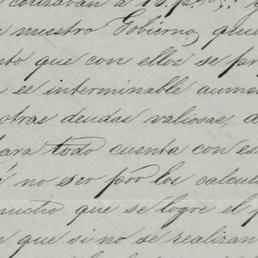 nuestro Gobierno, que
que con ellos se pr
es interminable aumen
otras deudas valiosas, a
para todo cuenta con es
no ser por los calcul
mucho que se logre el p
que si no se realizan